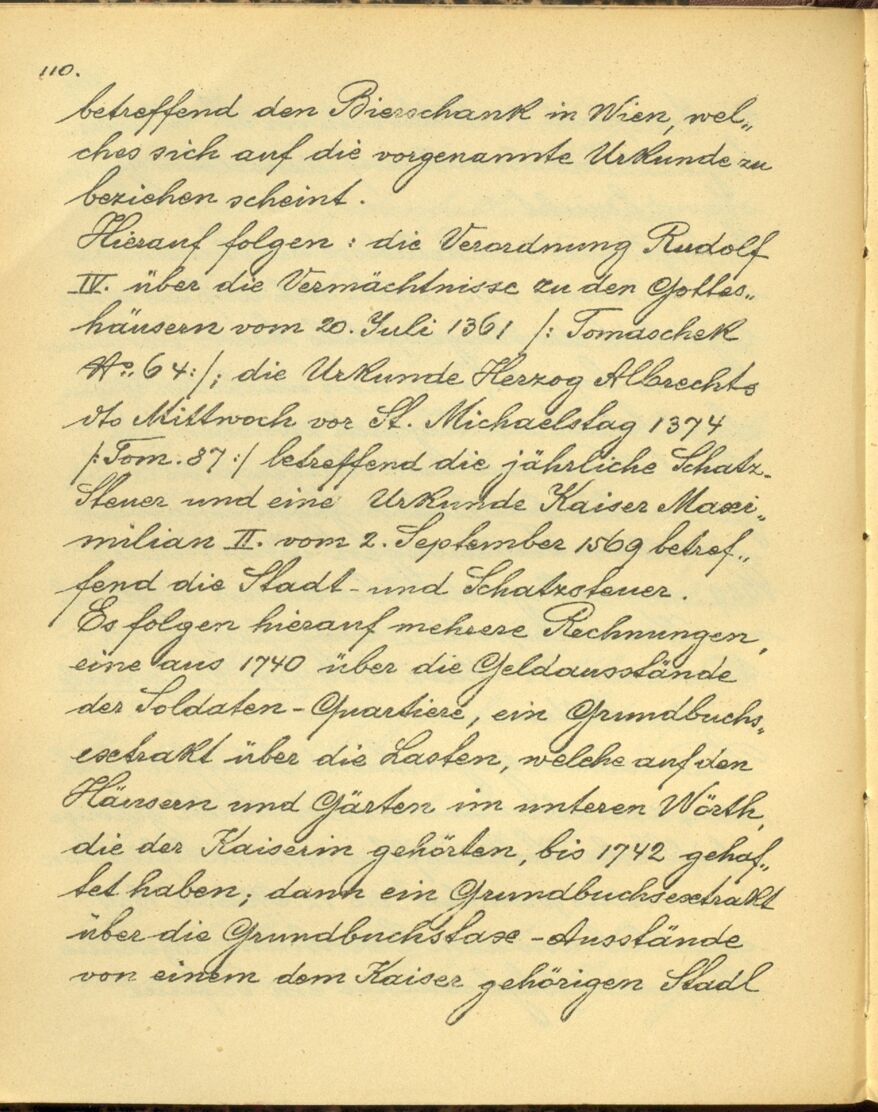 110.
betreffend den Bierschank in Wien, wel„
ches sich auf die vorgenannte Urkunde zu
beziehen scheint.
Hierauf folgen: die Verordnung Rudolf
IV. über die Vermächtnisse zu den Gottes„
häusern vom 20. Juli 1361 /: Tomaschek
No. 64:/; die Urkunde Herzog Albrechts
dto Mittwoch vor St. Michaelstag 1374
/:Tom. 87:/ betreffend die jährliche Schatz-
Steuer und eine Urkunde Kaiser Maxi„
milian II. vom 2. September 1569 betref„
fend die Stadt- und Schatzsteuer.
Es folgen hierauf mehrere Rechnungen,
eine aus 1740 über die Geldausstände
der Soldaten-Quartiere, ein Grundbuchs„
extrakt über die Lasten, welche auf den
Häusern und Gärten im unteren Wörth,
die der Kaiserin gehörten, bis 1742 gehaf„
tet haben; dann ein Grundbuchsextrakt
über die Grundbuchstaxe-Ausstände
von einem dem Kaiser gehörigen Stadl